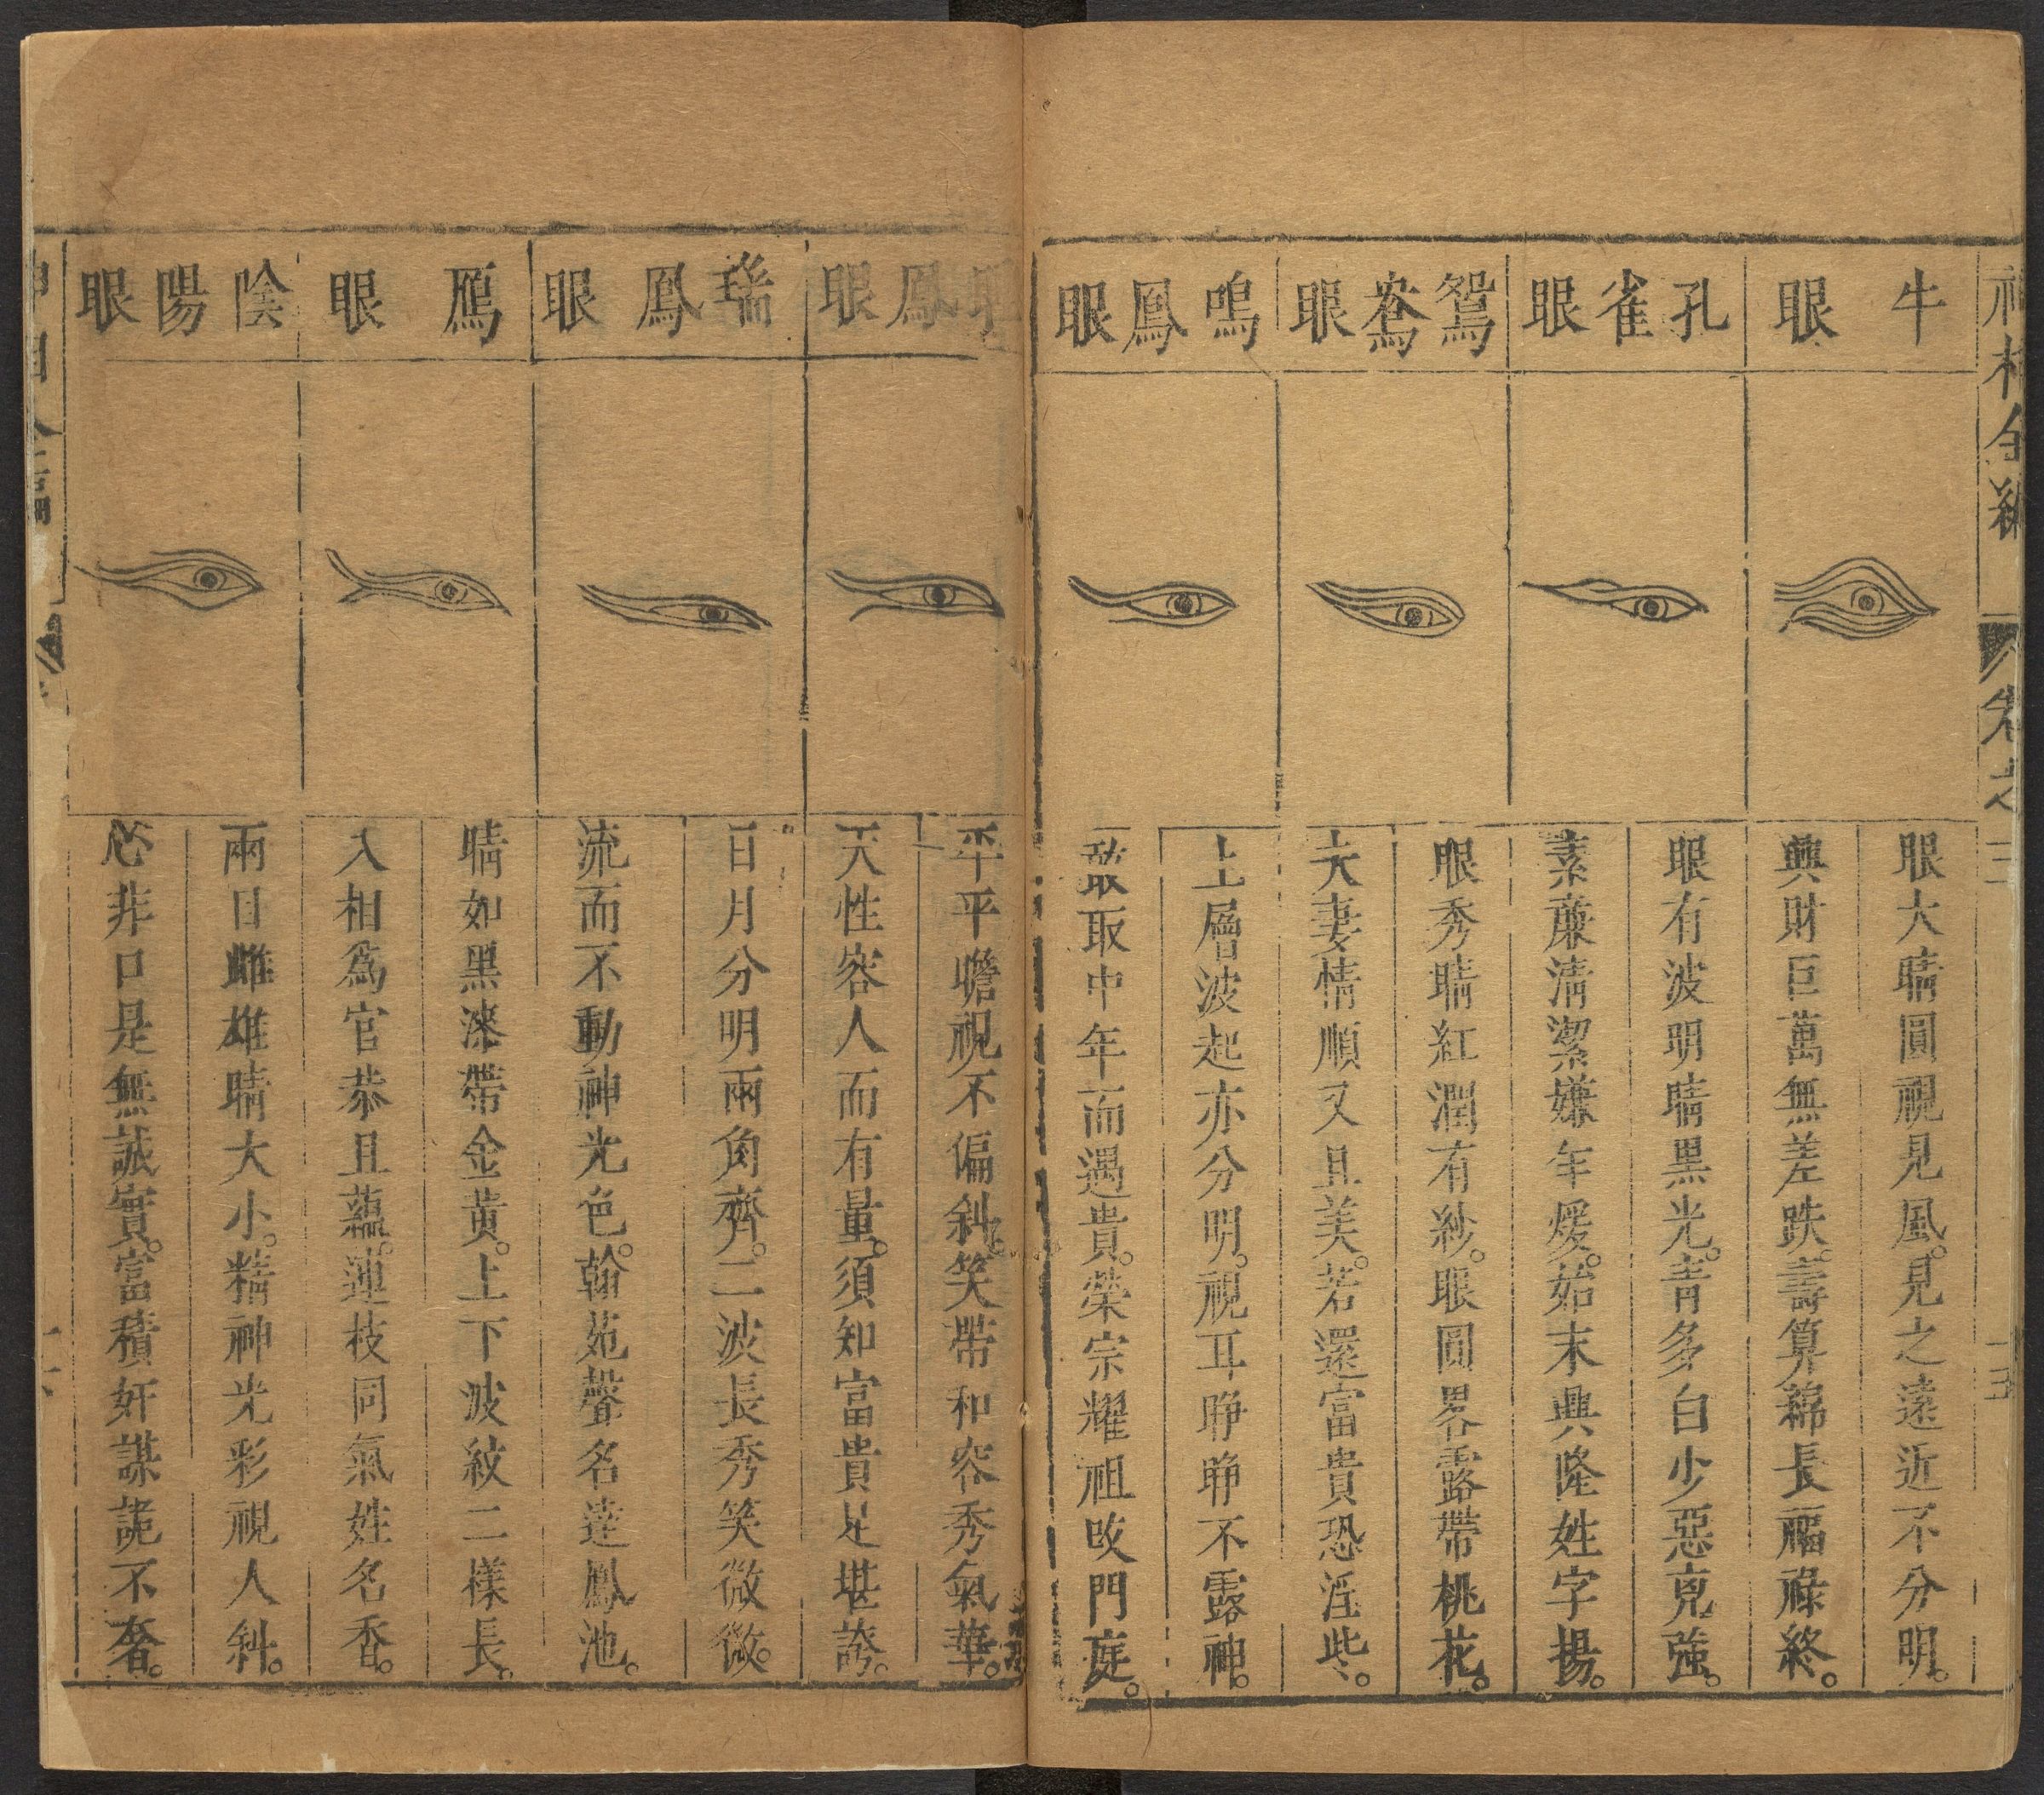 神相全編
卷之三
十五
牛眼
眼大睛圓視見風。見之遠近不分明。
興財巨萬無差跌。壽算綿長福祿終。
孔雀眼
眼有波明睛黑光。青多白少惡克強。
素亷淸潔嫌年煖。始末興隆姓字揚。
鴛鴦眼
眼秀睛紅潤有紗。眼圓畧露帶桃花。
夫妻情順又且美。若還富貴恐淫些。
鳴鳳眼
上層波起亦分明。視耳睜睜不露神。
敢取中年而遇貴。榮宗耀祖改門庭。
鳳眼
平平瞻視不偏斜。笑帶和容秀氣華。
天性容人而有量。須知富貴足堪誇。
瑞鳳眼
日月分明兩角齊。二波長秀笑微微。
流而不動神光色。翰苑聲名達鳳池。
鴈眼
睛如黑漆帶金黃。上下波紋二樣長。
入相爲官恭且蘊。連枝同氣姓名香。
陰陽眼
兩目雌雄睛大小。精神光彩視人斜。
心非口是無誠實。富積奸謀詭不奢。
十六